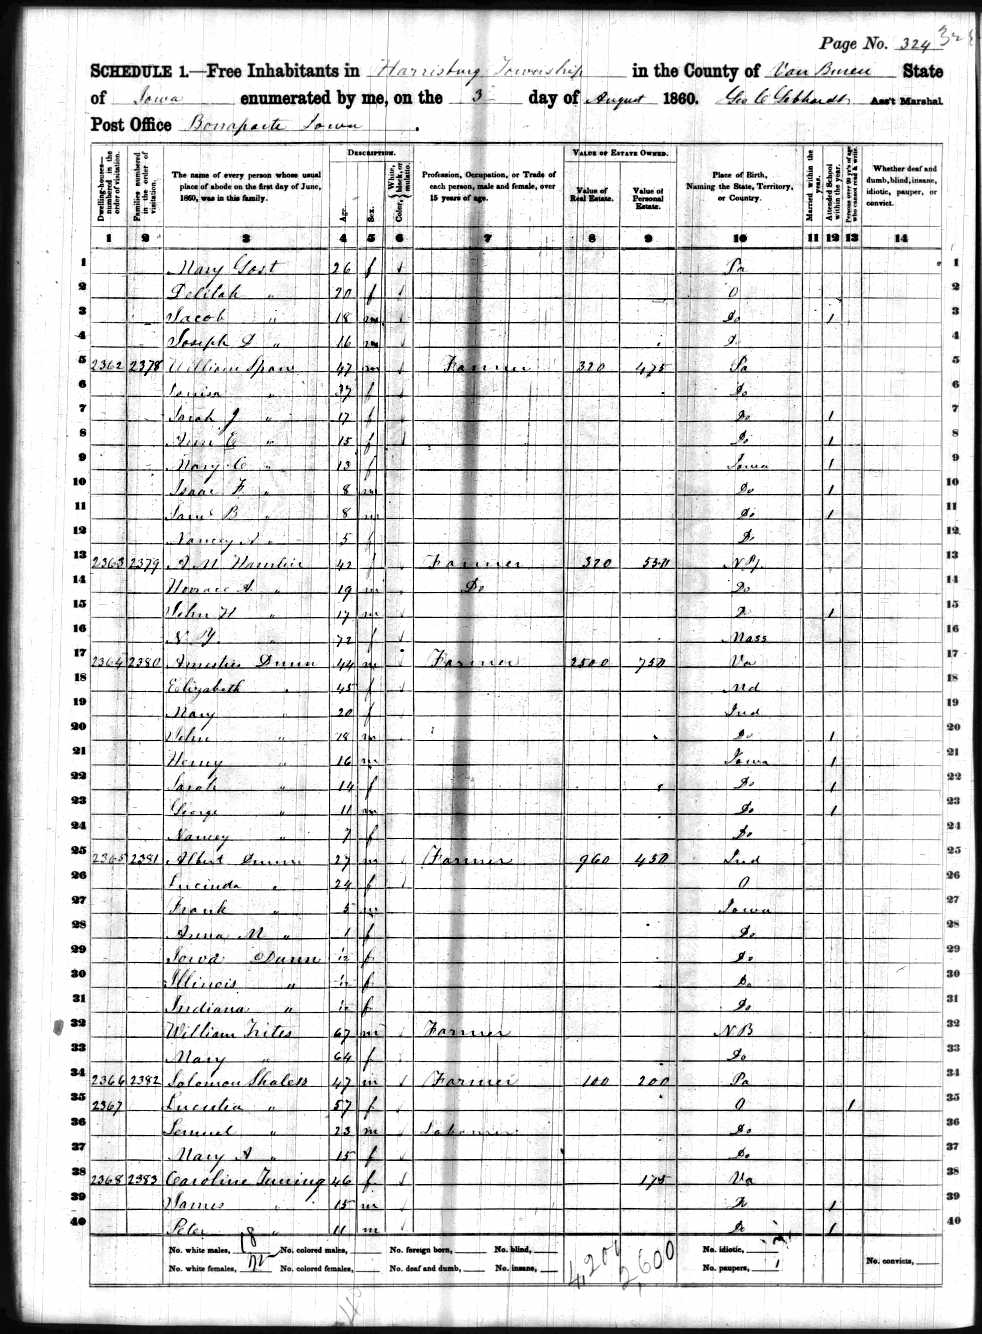 Page No. 324
SCHEDULE 1.—Free Inhabitants in Harrisburg Township in the County of Van Buren State
of Iowa enumerated by me, on the 3 day of August 1860. Geo C Gebhardt Ass't Marshal
Post Office Bonaparte Iowa.
Dwelling-houses—numbered in the order of visitation.
Families numbered in the order of visitation.
The name of every person whose usual place of abode on the first day of June, 1860, was in this family.
DESCRIPTION.
Age.
Sex.
Color, White, black, or mulatto.
Profession, Occupation, or Trade of each person, male and female, over 15 years of age.
VALUE OF ESTATE OWNED.
Value of Real Estate.
Value of Personal Estate.
Place of Birth, Naming the State, Territory, or Country.
Married within the year.
Attended School within the year.
Persons over 20 y'rs of age who cannot read & write.
Whether deaf and dumb, blind, insane, idiotic, pauper, or convict.
1 2 3 4 5 6 7 8 9 10 11 12 13 14
1 Mary 26 f Pa 1
2 Delilah " 20 f O 2
3 Jacob " 18 m Do 1 3
4 Joseph " 16 m 4
5 2362 2378 William 47 m Farmer 320 475 Pa 5
6 Louisa " 37 f Do 6
7 Sarah J " 17 f Do 1 7
8 Ann E " 15 f Do 1 8
9 Mary C " 13 f Iowa 1 9
10 Isaac F. " 8 m Do 1 10
11 Saml B " 8 m Do 1 11
12 Nancy A " 5 f Do 12
13 2363 2379 Hamlin 42 f Farmer 320 13
14 Horrace A. " 19 m Do Do 14
15 John H " 17 m Do 1 15
16 N. Y. " 72 f Mass 16
17 2364 2380 Dunn 44 m Farmer 2500 750 Va 17
18 Elizabeth " 45 f Md 18
19 Mary " 20 f Ind 19
20 John " 18 m Do 1 20
21 Henry " 16 m Iowa 1 21
22 Sarah " 14 f Do 1 22
23 George " 11 m Do 1 23
24 Nancy " 7 f Do 24
25 2365 2381 Albert Dunn 27 m Farmer 960 450 Ind 25
26 Lucinda " 24 f O 26
27 Frank " 5 m Iowa 27
28 Anna M " 1 f Do 28
29 Iowa Dunn f Do 29
30 Illinois " f Do 30
31 Indiana " f Do 31
32 William Trites 67 m Farmer N B 32
33 Mary " 64 f Do 33
34 2366 2382 Solomon Shaless 47 m Farmer 100 200 Pa 34
35 2367 " 57 f O 1 35
36 Lemuel " 23 m Laborer Do 36
37 Mary A " 15 f Do 37
38 2368 2383 Caroline 46 f 175 Va 38
39 James " 15 m Do 1 39
40 Peter " 11 m Do 1 40
No. white males, 18 No. colored males, No. foreign born, No. blind, 4,200 2,600 No. idiotic,
No. white females, No. colored females, No. deaf and dumb, No. insane, No. paupers, No. convicts,